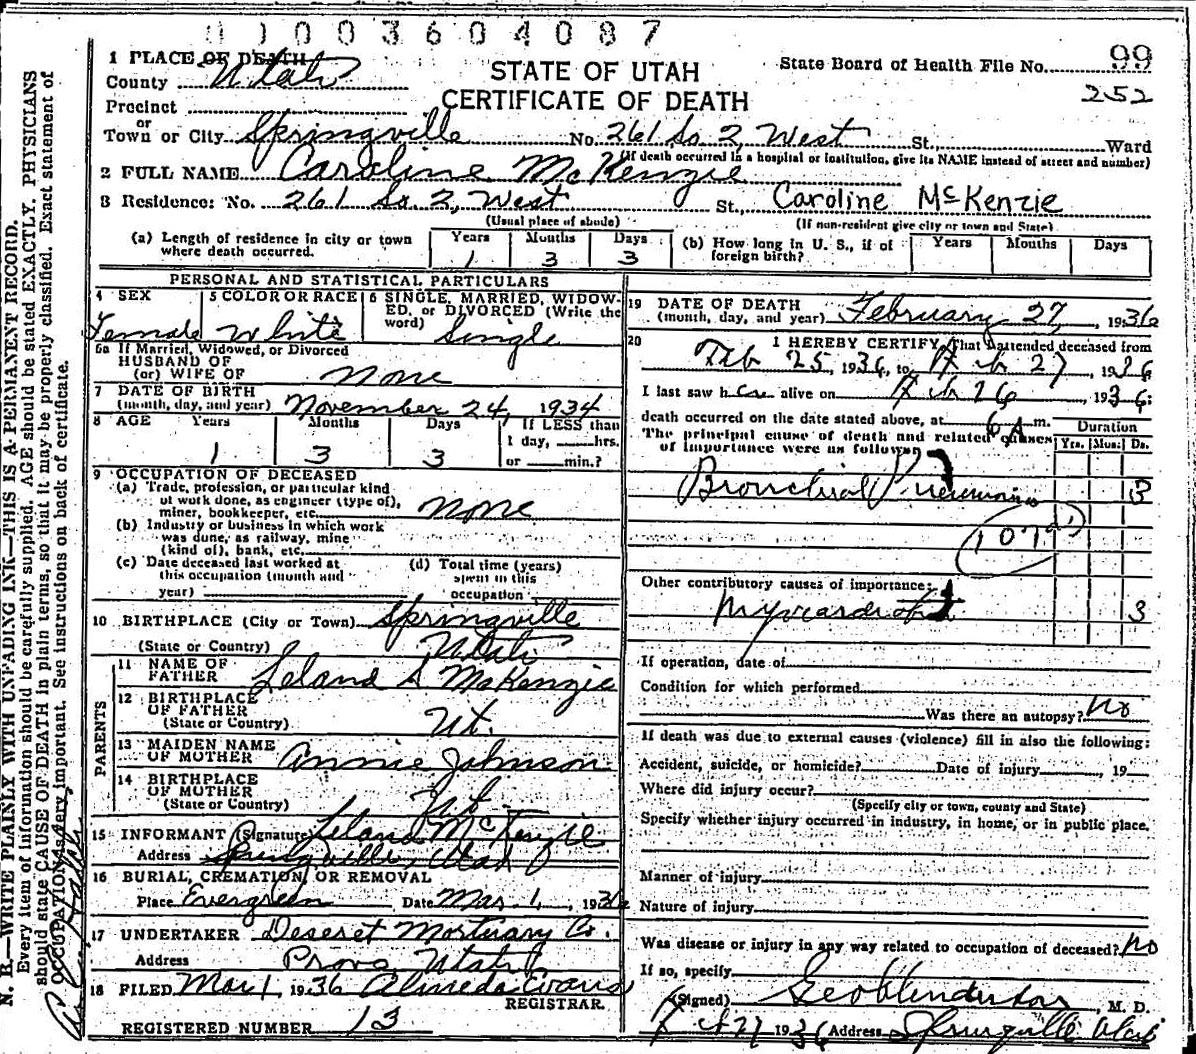 0 1 0 0 3 6 0 4 0 8 7
1 PLACE OF DEATH
STATE OF UTAH
State Board of Health File No. 99
County Utah
252
CERTIFICATE OF DEATH
Precinct
or
Town or City Springville No. 261 So. 2, West St. Ward
(If death occurred in a hospital or institution, give its NAME instead of street and number)
2 FULL NAME Caroline McKenzie
3 Residence: No. 261 So. 2, West St. Caroline McKenzie
(Usual place of abode) (If non-resident give city or town and State)
(a) Length of residence in city or town where death occurred. Years 1 Months 3 Days 3
(b) How long in U. S., if of foreign birth? Years Months Days
PERSONAL AND STATISTICAL PARTICULARS
4 SEX Female
5 COLOR OR RACE White
6 SINGLE, MARRIED, WIDOWED, or DIVORCED (Write the word) Single
6a If Married, Widowed, or Divorced
HUSBAND OF
(or) WIFE OF none
7 DATE OF BIRTH
(month, day, and year) November 24, 1934
8 AGE Years 1 Months 3 Days 3
If LESS than
1 day, hrs.
or min.?
9 OCCUPATION OF DECEASED
(a) Trade, profession, or particular kind
of work done, as engineer (type of),
miner, bookkeeper, etc. none
(b) Industry or business in which work
was done, as railway, mine
(kind of), bank, etc.
(c) Date deceased last worked at
this occupation (month and
year)
(d) Total time (years)
spent in this
occupation
10 BIRTHPLACE (City or Town) Springville
(State or Country) Utah
PARENTS
11 NAME OF
FATHER Leland S McKenzie
12 BIRTHPLACE
OF FATHER
(State or Country) Ut.
13 MAIDEN NAME
OF MOTHER Annie Johnson
14 BIRTHPLACE
OF MOTHER
(State or Country) Ut.
15 INFORMANT (Signature) Leland McKenzie
Address Springville, Utah
16 BURIAL, CREMATION, OR REMOVAL
Place Evergreen Date Mar. 1, 1936
17 UNDERTAKER Deseret Mortuary Co.
Address Provo Utah
18 FILED Mar 1, 1936 Almeda Evans
REGISTRAR.
REGISTERED NUMBER 13
19 DATE OF DEATH
(month, day, and year) February 27, 1936
20 I HEREBY CERTIFY, That I attended deceased from
Feb 25, 1936, to Feb 27, 1936
I last saw her alive on Feb 26, 1936:
death occurred on the date stated above, at 6 A. m. Duration
The principal cause of death and related causes
of importance were as follows: Yrs. Mos. Ds.
Bronchial Pneumonia 3
107
Other contributory causes of importance:
3
If operation, date of
Condition for which performed
Was there an autopsy? No
If death was due to external causes (violence) fill in also the following:
Accident, suicide, or homicide? Date of injury , 19
Where did injury occur?
(Specify city or town, county and State)
Specify whether injury occurred in industry, in home, or in public place.
Manner of injury
Nature of injury
Was disease or injury in any way related to occupation of deceased? No
If so, specify
(Signed) Geo Anderson, M. D.
Feb 27 1936 Address Springville Utah
N. B.—WRITE PLAINLY WITH UNFADING INK—THIS IS A PERMANENT RECORD.
Every item of information should be carefully supplied. AGE should be stated EXACTLY. PHYSICIANS
should state CAUSE OF DEATH in plain terms, so that it may be properly classified. Exact statement of
OCCUPATION is very important. See instructions on back of certificate.